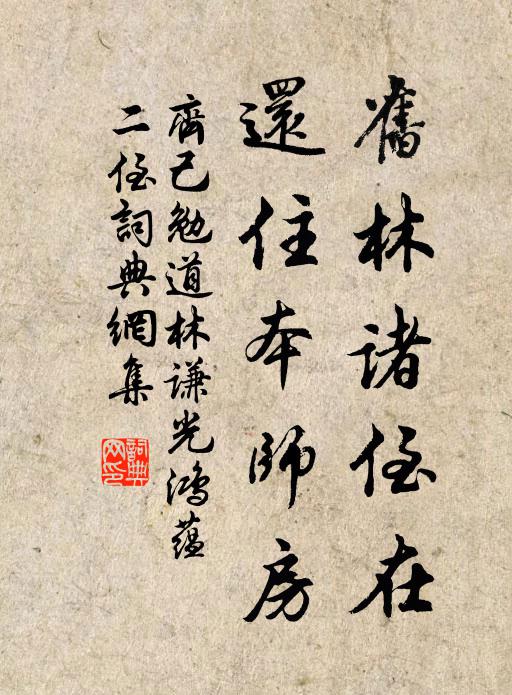 舊林諸侄在
還住本師房
齊己勉道林謙光鴻蘊
二侄詞典網集
詞典网印